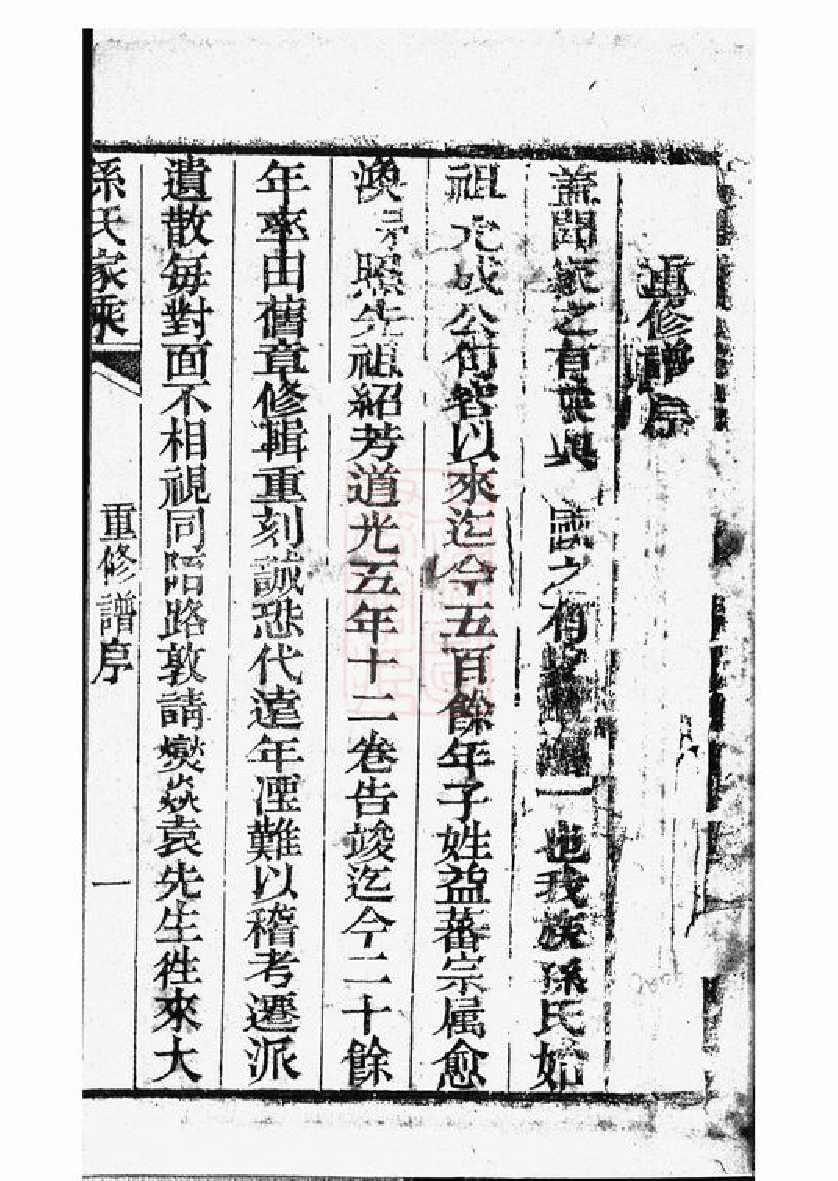 重修譜序
蓋聞家之有乘與國之有史一也我族孫氏始
祖元成公句容以來迄今五百餘年子姓益蕃宗属愈
渙照先祖紹芳道光五年十二卷告竣迄今二十餘
年率由舊章修輯重刻誠恐代遠年湮難以稽考遷派
遺散每對面不相視同陌路敦請爕焱袁先生徃來大
孫氏家乘
重修譜序
一